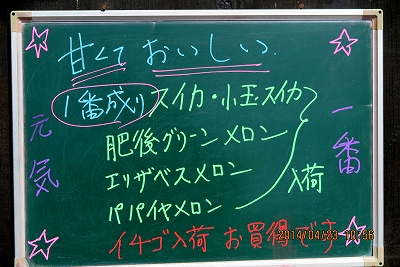 甘くて おいしい。
1番成り スイカ・小玉スイカ
肥後グリーンメロン
エリザベスメロン
パパイヤメロン
入荷
イチゴ入荷 お買得です
元気
一番
2014/04/23 10:56